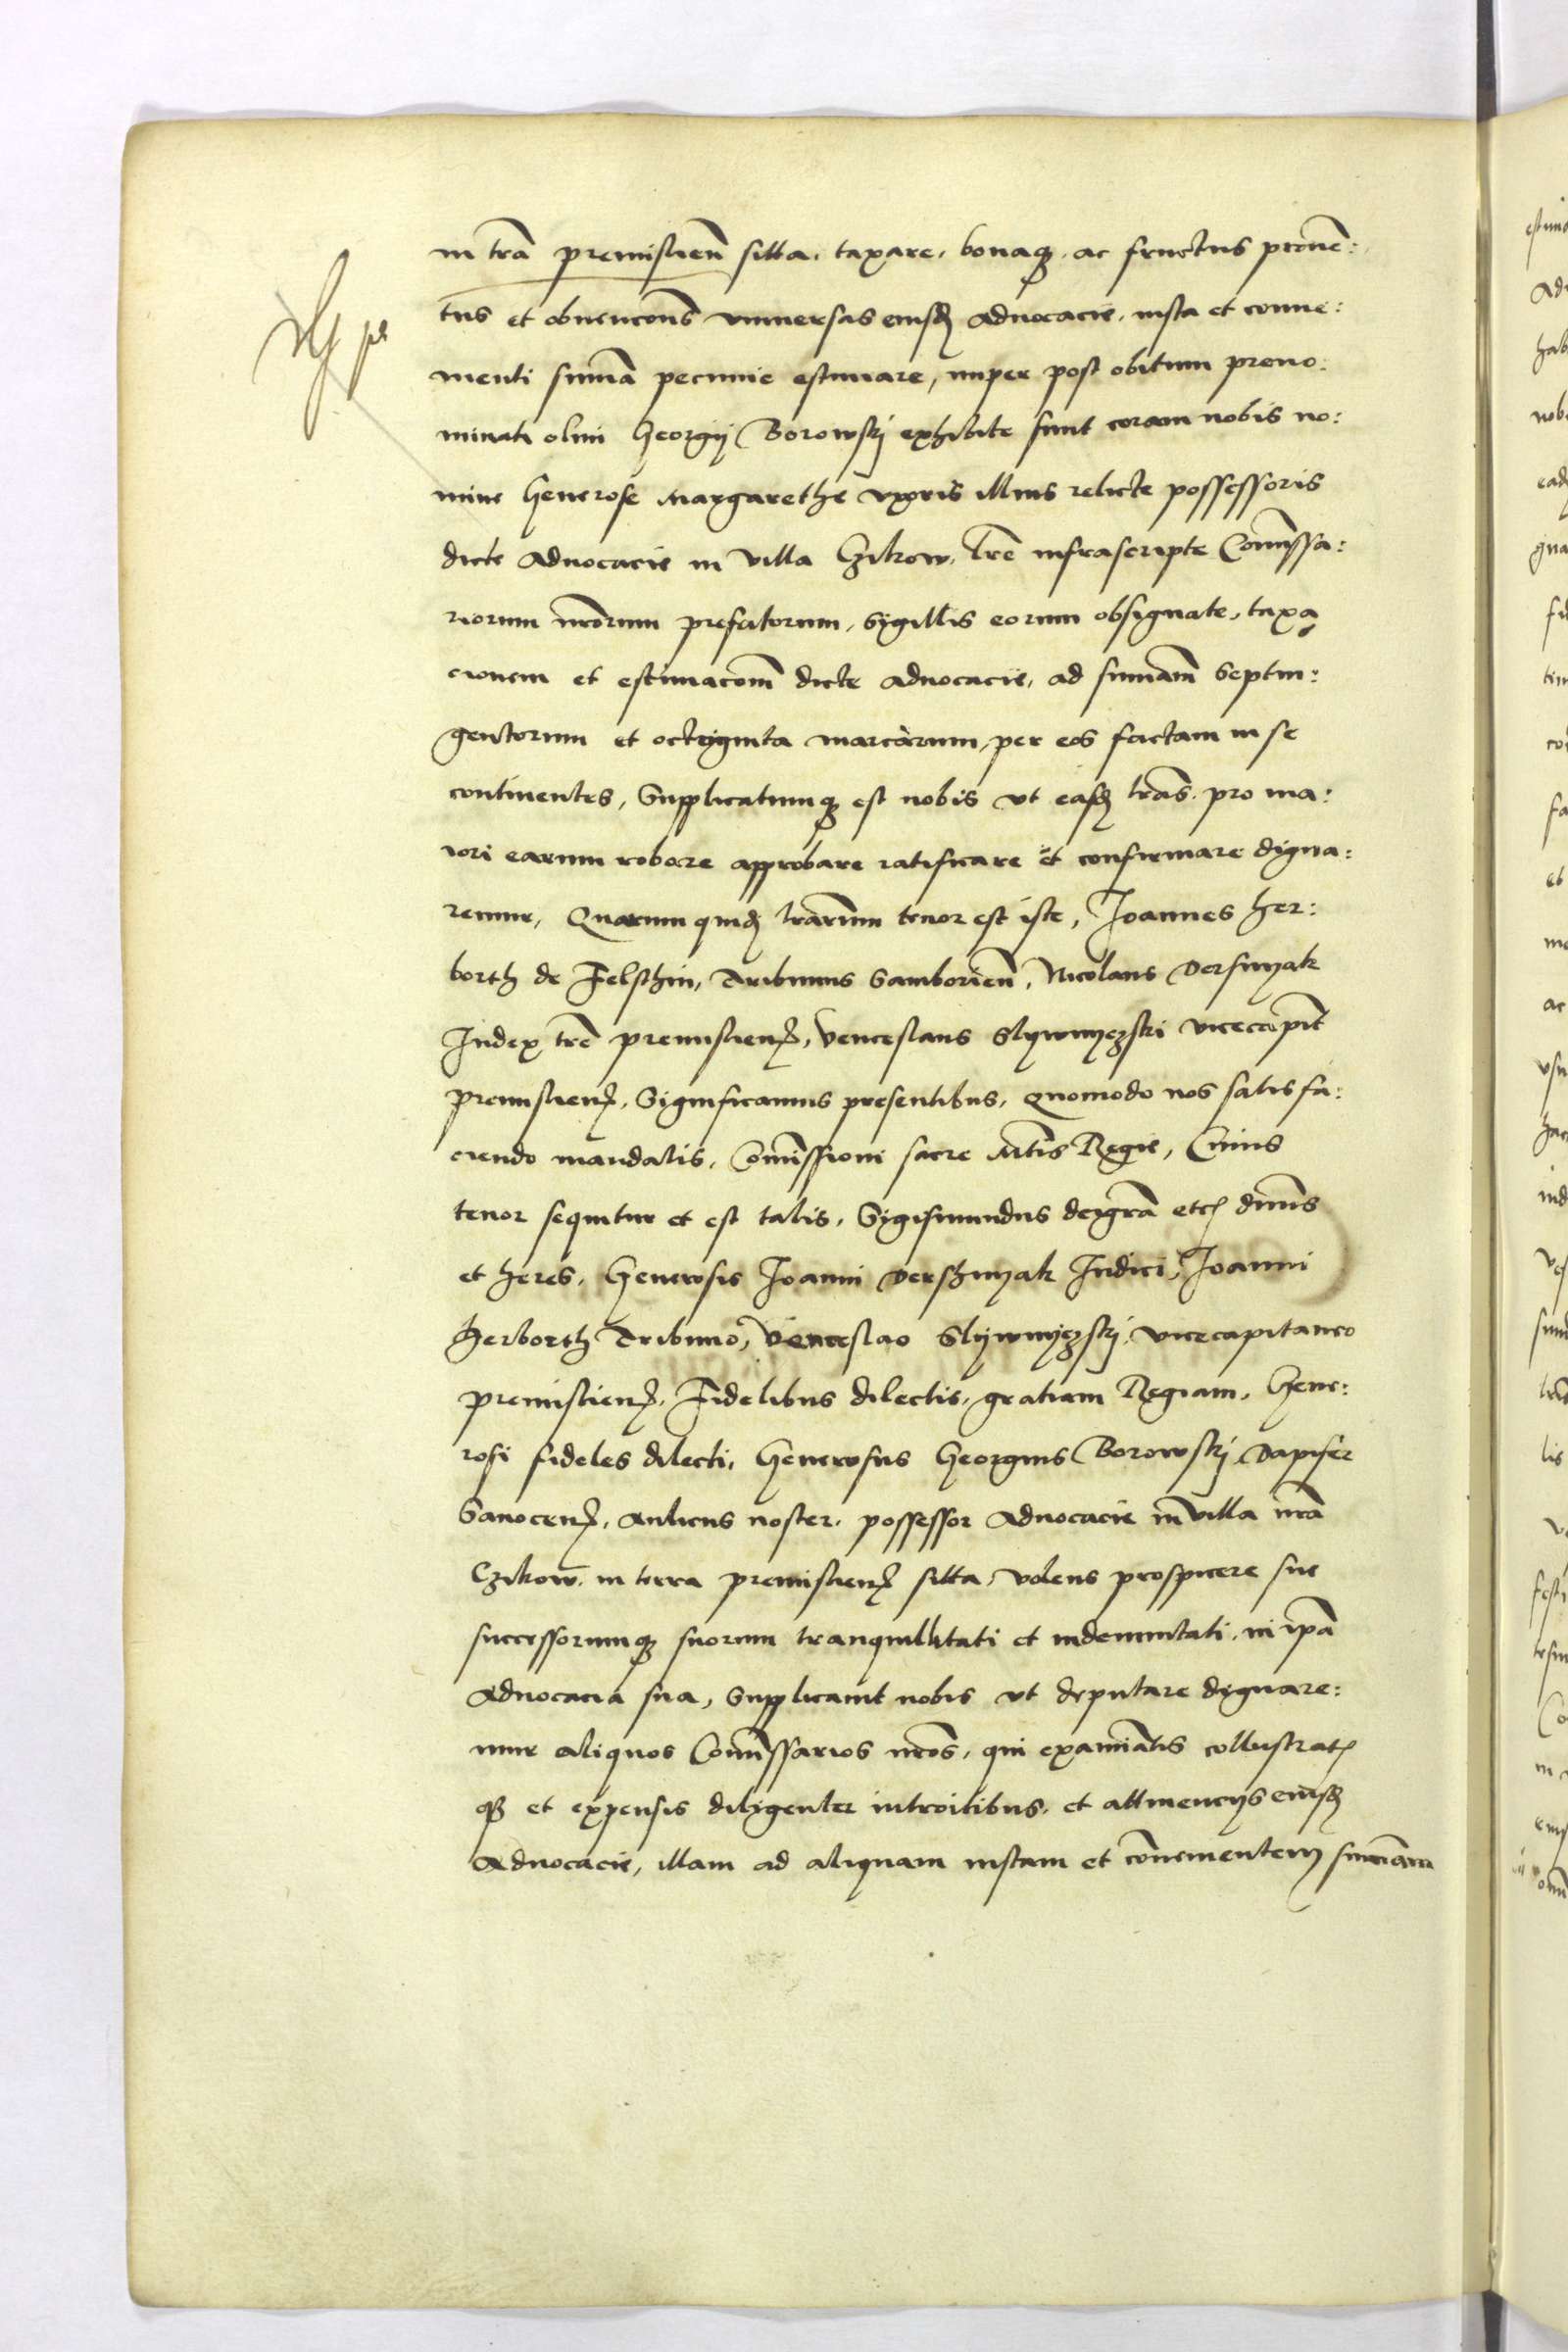 in tr̃a premislien̄ sitta, taxare, bonaqꝫ ac fructus proue͂:
tus et obuencon̄s vniuersas eiusdꝫ aduocacie, iusta et conue:
nienti sum̄a pecunie estimare, nuper post obitum preno:
minati olim Georgij Borowskj exhibite sunt coram nobis no:
mine Generose Margarethe vxoris illius relicte possessoris
dicte aduocacie in villa Czikow, lr̃e infrascripte Com̄issa:
riorum nr̃orum prefatorum, sygillis eorum obsignate, taxa
cionem et estimacom̄ dicte aduocacie, ad sum̄am septin:
gentorum et octuginta marcarum, per eos factam in se
continentes, Supplicatumqꝫ est nobis vt easdꝫ lr̃as pro ma:
iori earum robore approbare ratificare et confirmare digna:
remur, Quarum quidꝫ lr̃arum tenor est iste, Joannes Her:
borth de Felsthin, Tribunus Samborien̄, Nicolaus Dersnyak
Judex tr̃e premislienꝭ, Venceslaus Slywnyczski vicecapit̄
premislienꝭ, Significamus presentibus, quomodo nos satisfa:
ciendo mandatis, Com̄issioni sacre Mt̄is Regie, Cuius
tenor sequitur et est talis, Sygismundus dei gr̃a etcꝭ dn̄us
et heres, Generosis Joanni Dershnyak Judici, Joanni
Herborth Tribuno, Venceslao Slywnyczskj vicecapitaneo
premislienꝭ, Fidelibus dilectis, gratiam Regiam, Gene:
rosi fideles dilecti, Generosus Georgius Borowskj Dapifer
Sanocenꝭ, aulicus noster, possessor aduocacie in villa nr̃a
Czikow, in terra premislienꝭ sitta, volens prospicere sue
successorumqꝫ suorum tranquillitati et indemnitati, in ip̄a
aduocacia sua, Supplicauit nobis vt deputare dignare:
mur aliquos Com̄issarios nr̃os, qui examinatis collustratꝭ
qꝫ et expensis diligenter introitibus, et attinencijs eiusdꝫ
Aduocacie, illam ad aliquam iustam et con̄uenientem sum̄am